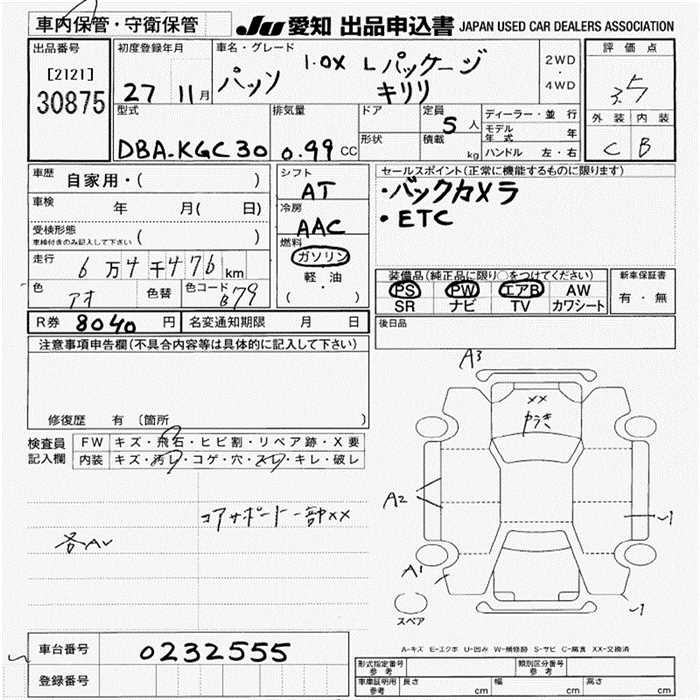 車内保管・守衛保管
JU 愛知 出品申込書 JAPAN USED CAR DEALERS ASSOCIATION
出品番号
[2121]
30875
初度登録年月
27 11月
車名・グレード
パッソ 1.0X Lパッケージ
キリリ
2WD
・
4WD
評価点
3.5
外装 内装
C B
型式
DBA-KGC30
排気量
0.99 CC
ドア
形状
定員
5 人
積載
kg
ディーラー・並行
モデル年式 年
ハンドル 左・右
車歴 自家用・( )
車検 年 月( 日)
受検形態
車検付きのみ記入して下さい ( )
走行 6万4千476km
色 アオ 色替 色コード B79
シフト
AT
冷房
AAC
燃料
ガソリン
軽・油
( )
セールスポイント(正常に機能するものに限ります)
・バックカメラ
・ETC
装備品(純正品に限り○をつけてください)
PS PW エアB AW
SR ナビ TV カワシート
新車保証書
有・無
R券 8040 円 名変通知期限 月 日
後日品
注意事項申告欄(不具合内容等は具体的に記入して下さい)
修復歴 有 (箇所 )
検査員
記入欄
FW キズ・飛石・ヒビ割・リペア跡・X要
内装 キズ・汚レ・コゲ・穴・スレ・キレ・破レ
コアサポート一部XX
各AU
A3
XX
A2
A1
スペア
A-キズ E-エクボ U-凹み W-補修跡 S-サビ C-腐食 XX-交換済
車台番号 0232555
登録番号
形式指定番号
参考
類別区分番号
参考
車庫証明用
参考
長さ cm 幅 cm 高さ cm